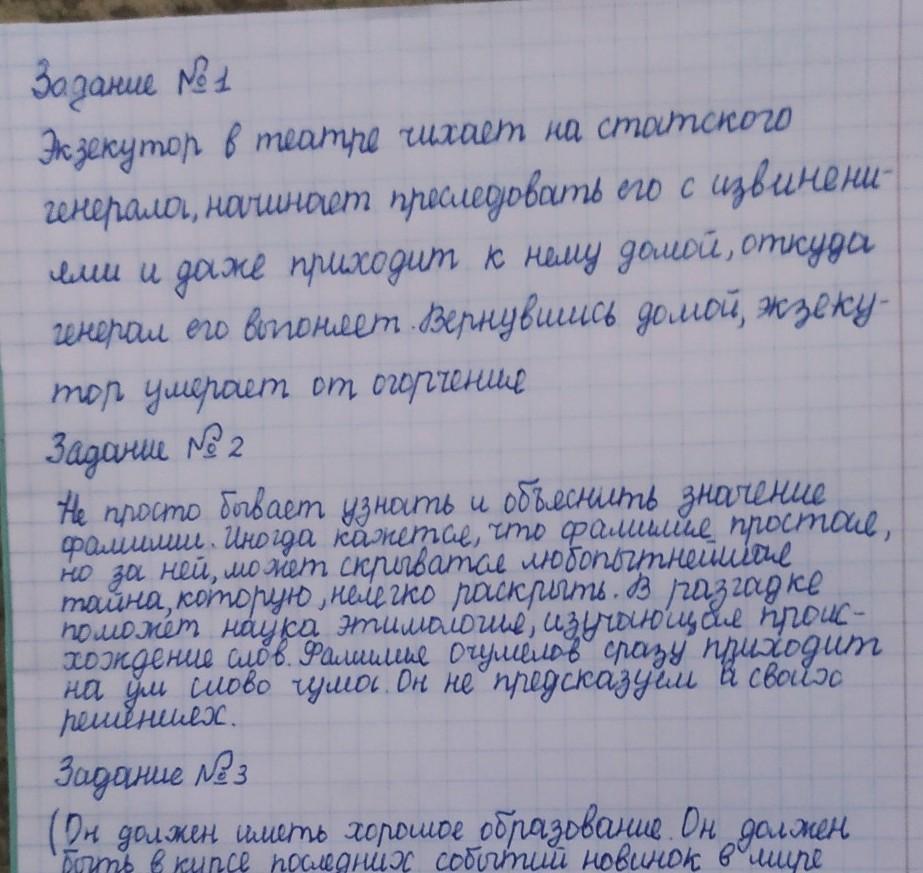 Задание №1
Экзекутор в театре чихает на статского
генерала, начинает преследовать его с извинени-
ями и даже приходит к нему домой, откуда
генерал его выгоняет. Вернувшись домой, экзеку-
тор умерает от огорчение
Задание №2
Не просто бывает узнать и объяснить значение
фамилии. Иногда кажется, что фамилия простая,
но за ней, может скрыватся любопытнейшая
тайна, которую, нелегко раскрыть. В разгадке
поможет наука этимология, изучающая проис-
хождение слов. Фамилия Очумелов сразу приходит
на ум слово чума. Он не предсказуем в своих
решениях.
Задание №3
(Он должен иметь хорошое образование. Он должен
быть в курсе последних событий новинок в мире